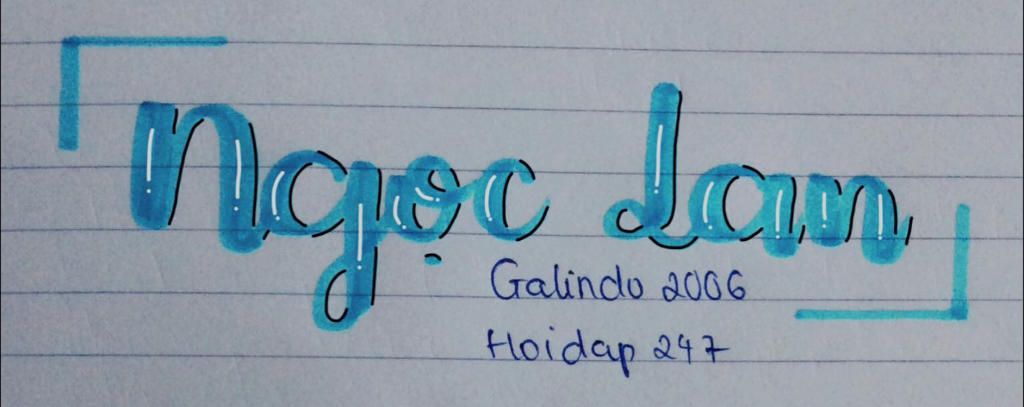 Ngọc Lan
Galindo 2006
Hoidap 247